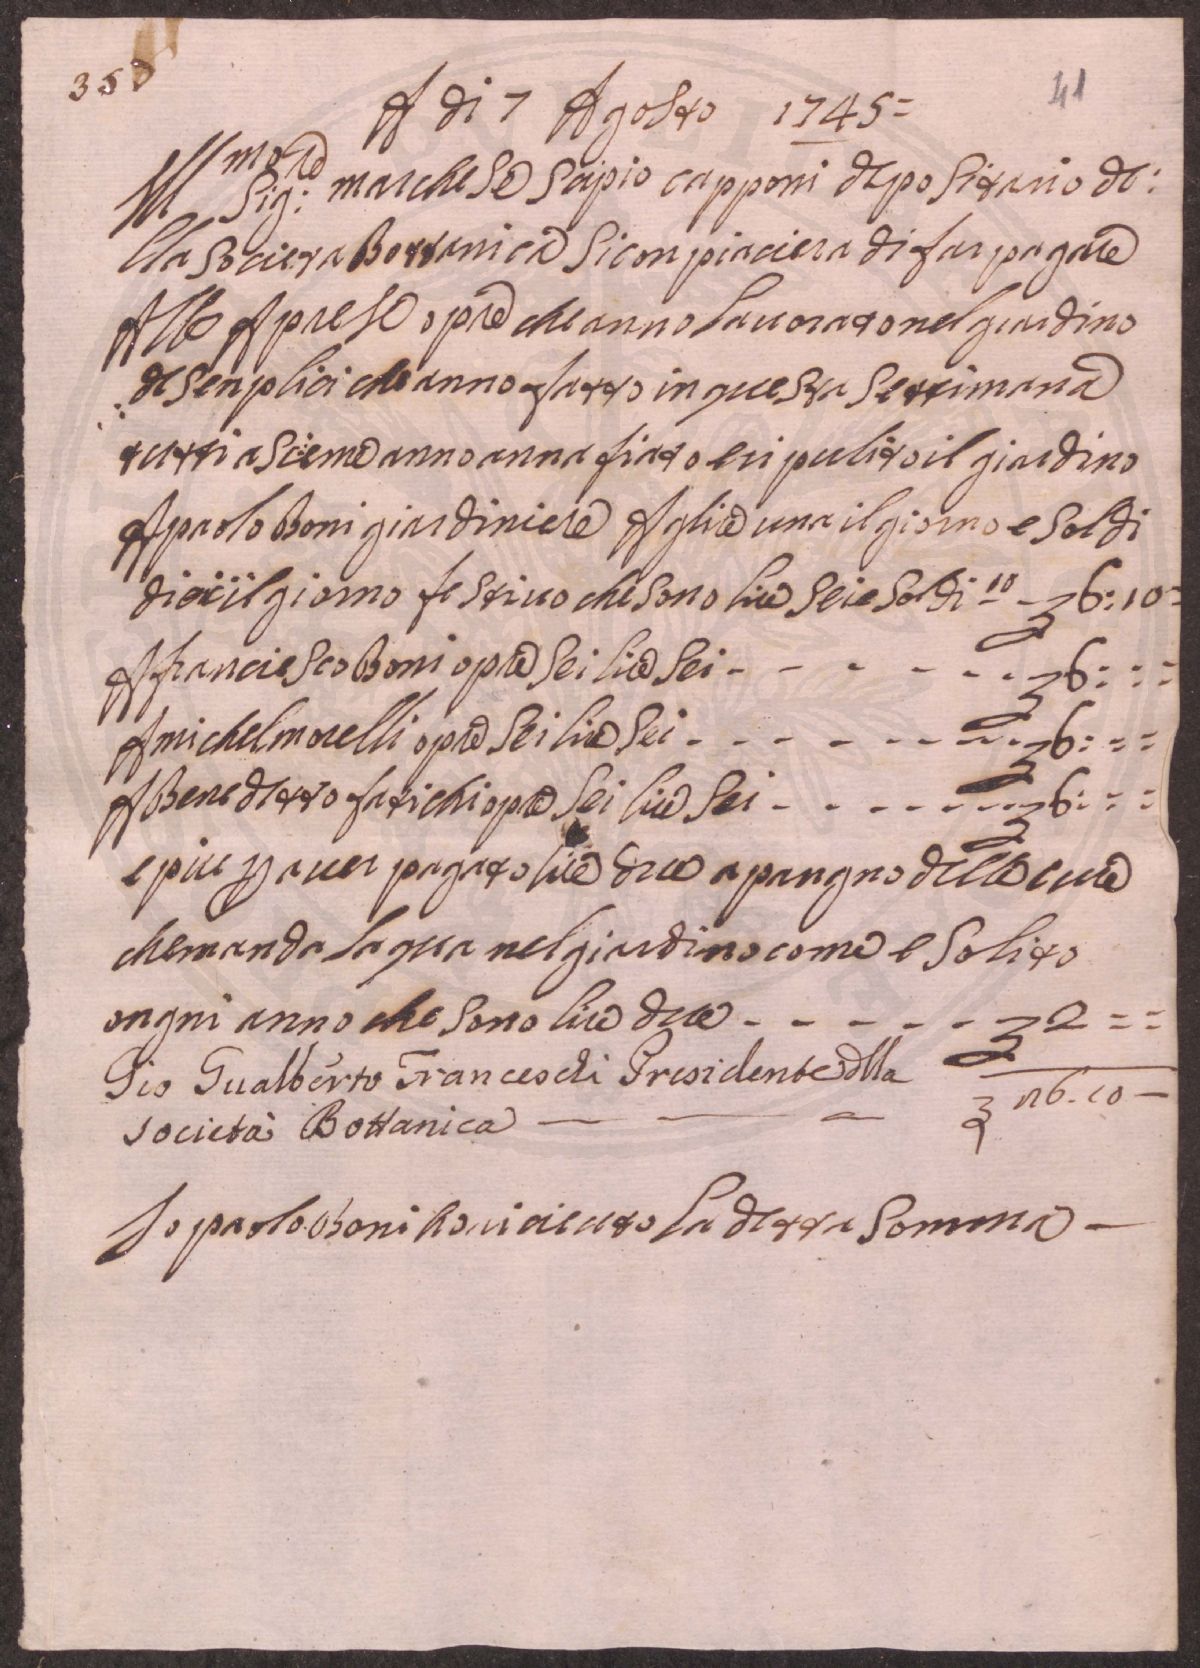 350
41
A di 7 Agosto 1745=
Ill mo re
Sig: marchese Scipio capponi depositario de:
lla Societa Bottanica Si conpiaciera di far pagare
Alle Aprese opre che anno lauorato nel giardino
de Senplici che anno fatto in questa Settimana
tutti asieme anno anna fiato e ri pulito il giardino
A paolo Boni giardiniere A lire una il giorno e Soldi
dieci il giorno festiuo che sono lire Sei e Soldi 10 - 6:10=
A franciesco Boni opre Sei lire Sei - - - - - - 6: = =
A michel morelli opre Sei lire Sei - - - - - - 6: = =
A Benedetto fatichi opre Sei lire Sei - - - - - - 6: = =
e piu p auer pagato lire due a pangno delle cure
che manda laqua nel giardino come e Solito
ongni anno che sono lire due - - - - - - 2 = =
Gio Gualberto Franceschi Presidente della
società Bottanica — — — 26.10 —
Io paolo Boni ho riceuto la detta Somma —